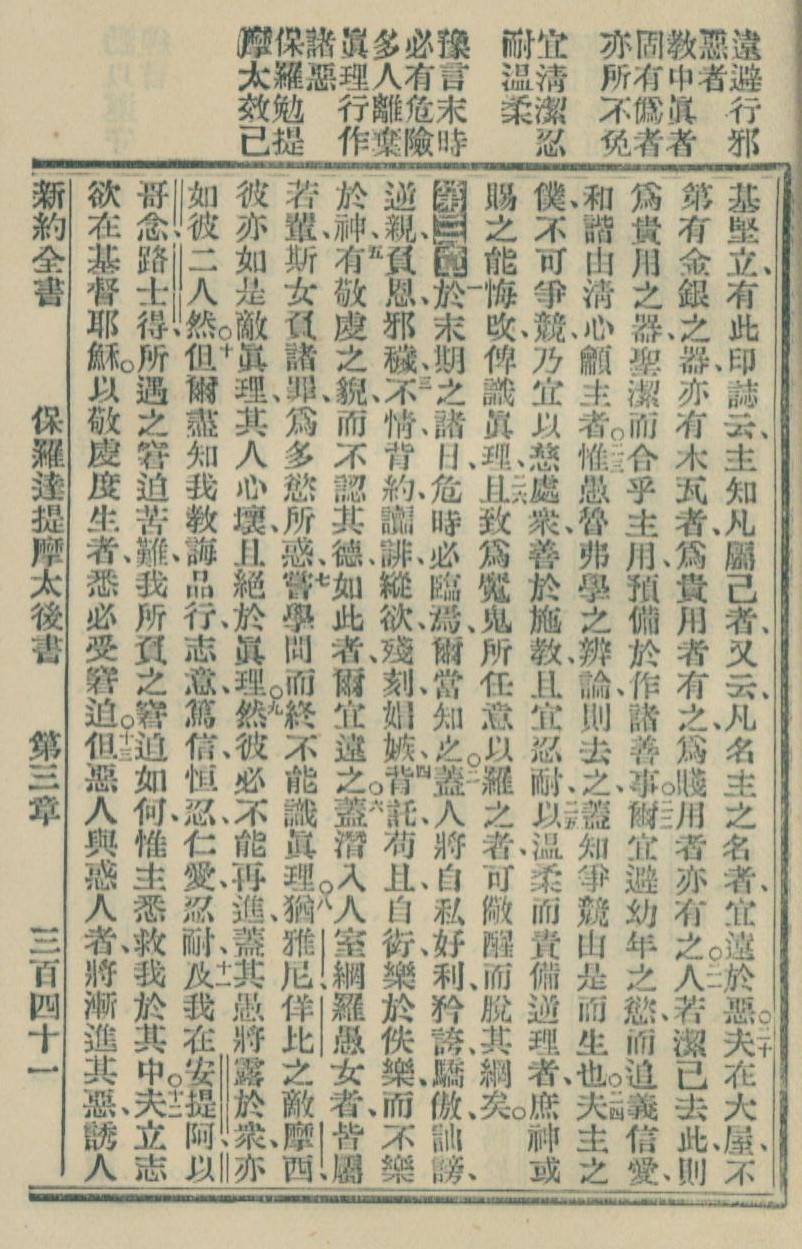 遠避行邪
惡者
教中眞者
固有僞者
亦所不免
宜淸潔忍
耐温柔
豫言末時
必有危險
多人離棄
眞理行作
諸惡
保羅勉提
摩太效己
基堅立、有此印誌云、主知凡屬己者、又云、凡名主之名者、宜遠於惡○二十夫在大屋、不
第有金銀之器、亦有木瓦者、爲貴用者有之、爲賤用者亦有之○二一人若潔己去此、則
爲貴用之器、聖潔而合乎主用、預備於作諸善事○二二爾宜避幼年之慾、而追義信愛、
和諧由淸心龥主者○二三惟愚魯弗學之辨論、則去之、蓋知爭競由是而生也○二四夫主之
僕、不可爭競、乃宜以慈處衆、善於施教、且宜忍耐、二五以温柔而責備逆理者、庶神或
賜之能悔改、俾識眞理、二六且致爲魘鬼所任意以羅之者、可儆醒而脫其綱矣○
第三章一於末期之諸日、危時必臨焉、爾當知之○二蓋人將自私好利、矜誇、驕傲、訕謗、
逆親、負恩、邪穢、三不情、背約、讒誹、縱欲、殘刻、娼嫉、四背託、苟且、自衒、樂於佚樂、而不樂
於神、五有敬虔之貌、而不認其德、如此者、爾宜遠之○六蓋潛入人室、網羅愚女者、皆屬
若輩、斯女負諸罪、爲多慾所惑、七嘗學問而終不能識眞理○八猶雅尼佯比之敵摩西、
彼亦如是敵眞理、其人心壞、且絕於眞理○九然彼必不能再進、蓋其愚將露於衆、亦
如彼二人然○十但爾盡知我教誨、品行、志意、篤信、恒忍、仁愛、忍耐、十一及我在安提阿、以
哥念、路士得、所遇之窘迫苦難、我所負之窘迫如何、惟主悉救我於其中○十二夫立志
欲在基督耶穌、以敬虔度生者、悉必受窘迫○十三但惡人與惑人者、將漸進其惡、誘人
新約全書 保羅達提摩太後書 第三章 三百四十一